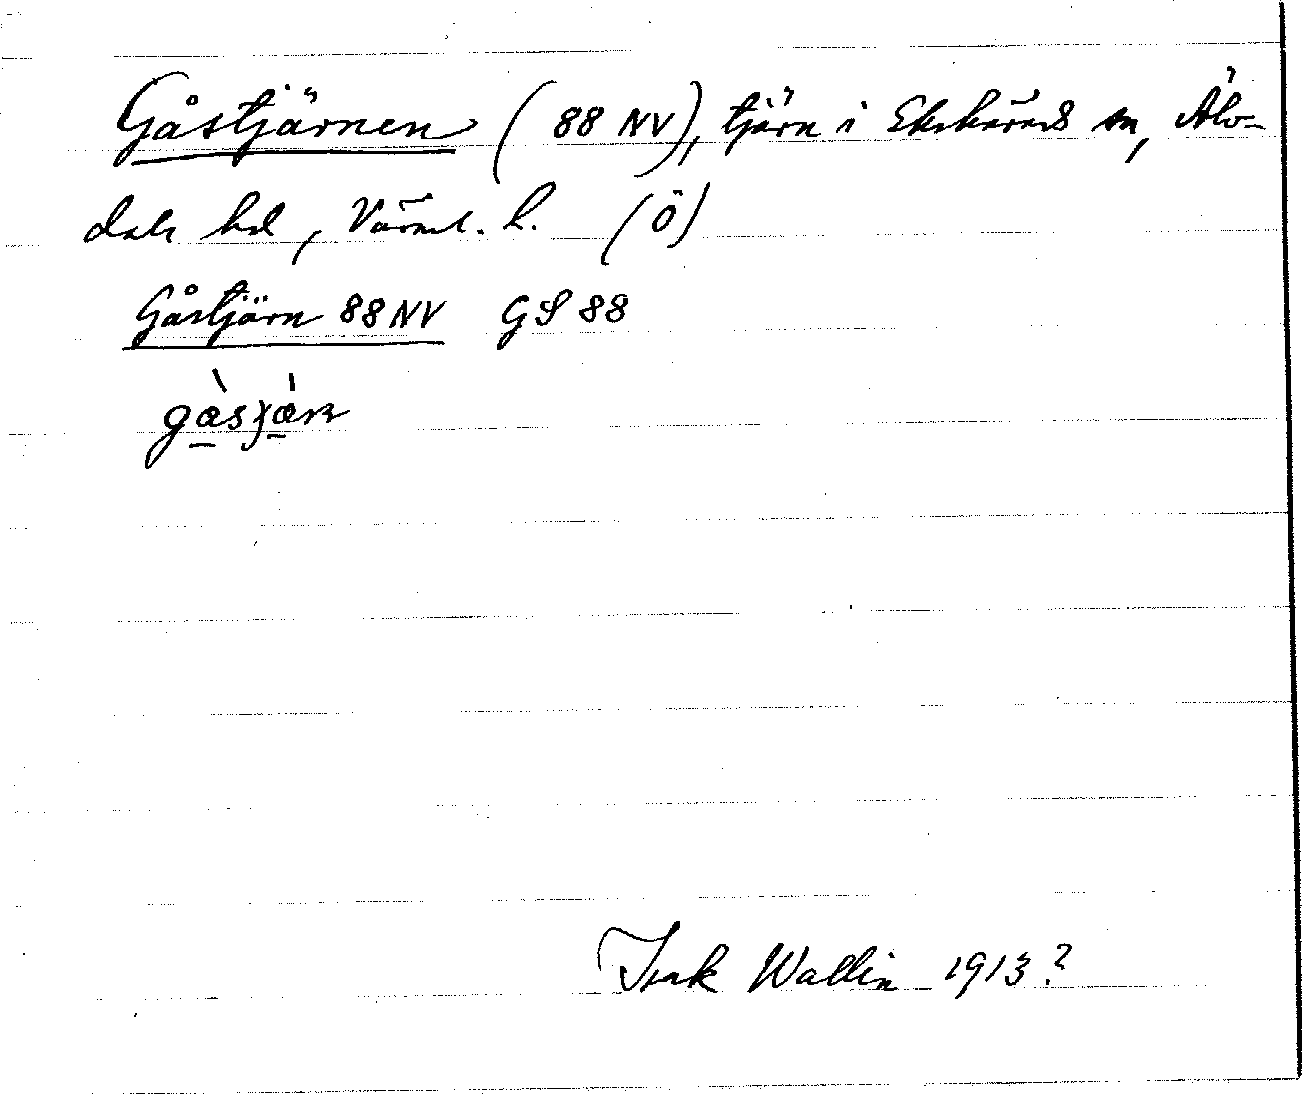 Gåstjärnen (88 NV), tjärn i Ekshärads sn, Älv-
dals hd, Värml. l. (Ö)
Gåstjärn 88 NV GS 88
Isak Wallin 1913?